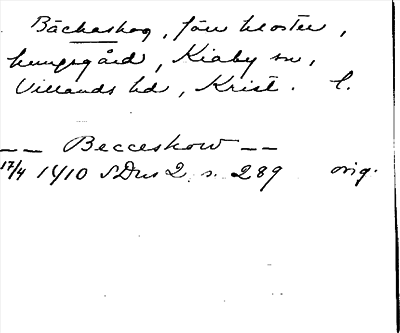 Bäckaskog, förr kloster,
kungsgård, Kiaby sn,
Villands hd, Krist. l.
-- Becceskow --
17/4 1410 SDns 2 s. 289 orig.